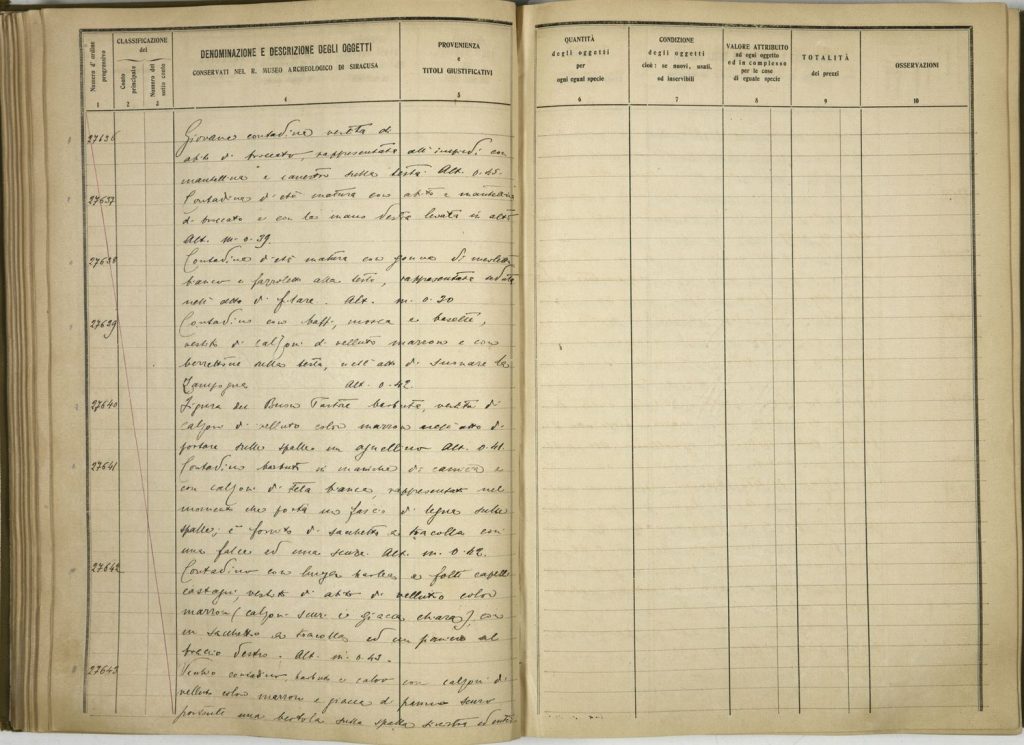 Numero d'ordine progressivo
CLASSIFICAZIONE
del
Conto principale
Numero del sotto conto
DENOMINAZIONE E DESCRIZIONE DEGLI OGGETTI
CONSERVATI NEL R. MUSEO ARCHEOLOGICO DI SIRACUSA
PROVENIENZA
e
TITOLI GIUSTIFICATIVI
1 2 3 4 5
27636 Giovane contadina vestita di
abito di broccato, rappresentata all'impiedi con
mantellina e canestro sulla testa. Alt. 0.45.
27637 Contadina d'età matura con abito e mantellina
di broccato e con la mano destra levata in alto
Alt. m. 0.39.
27638 Contadina d'età matura con gonna di
bianco e fazzoletto alla testa, rappresentata seduta
nell'atto di filare. Alt. m. 0.30
27639 Contadino con baffi, mosca e basette,
vestito di calzoni di velluto marrone e con
berrettone sulla testa, nell'atto di suonare la
Zampogna Alt. 0.42.
27640 Figura del Buon Pastore barbuta, vestita di
calzoni di velluto color marrone nell'atto di
portare sulle spalle un agnellino Alt. 0.41.
27641 Contadino barbuto in maniche di camicia e
con calzoni di tela bianca, rappresentato nel
momento che porta un fascio di legna sulle
spalle; è fornito di sacchetto a tracolla con
una falce ed una scure. Alt. m. 0.42.
27642 Contadino con lunga barba e folti capelli
castagni, vestito di abito di velluto color
marrone (calzoni scuri e giacca chiara), con
un sacchetto a tracolla ed un paniere al
braccio destro. Alt. m. 0.43.
27643 Vecchio contadino barbuto e calvo con calzoni di
velluto color marrone e giacca di panno scuro
portante una bertola sulla spalla sinistra ed
QUANTITÀ
degli oggetti
per
ogni egual specie
CONDIZIONE
degli oggetti
cioè: se nuovi, usati,
od inservibili
VALORE ATTRIBUITO
ad ogni oggetto
ed in complesso
per le cose
di eguale specie
TOTALITÀ
dei prezzi
OSSERVAZIONI
6 7 8 9 10